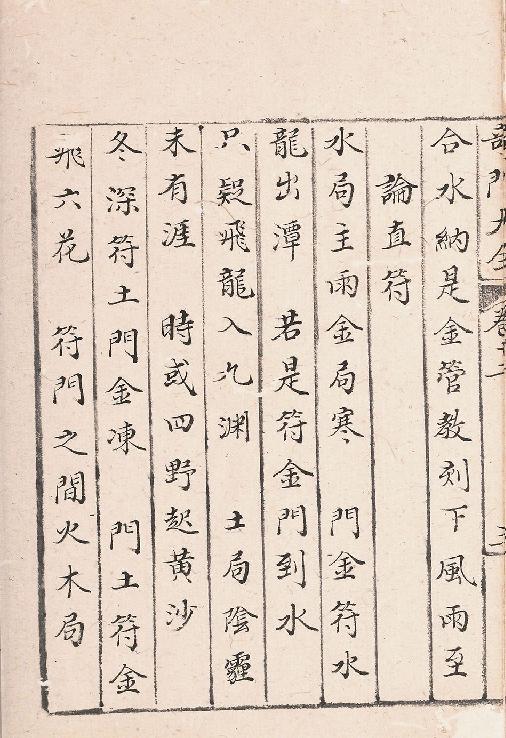 奇門大全 卷十二
合水納是金管教刻下風雨至
論直符
水局主雨金局寒 門金符水
龍出潭 若是符金門到水
只疑飛龍入九淵 土局陰霾
未有涯 時或四野起黃沙
冬深符土門金凍 門土符金
飛六花 符門之間火木局